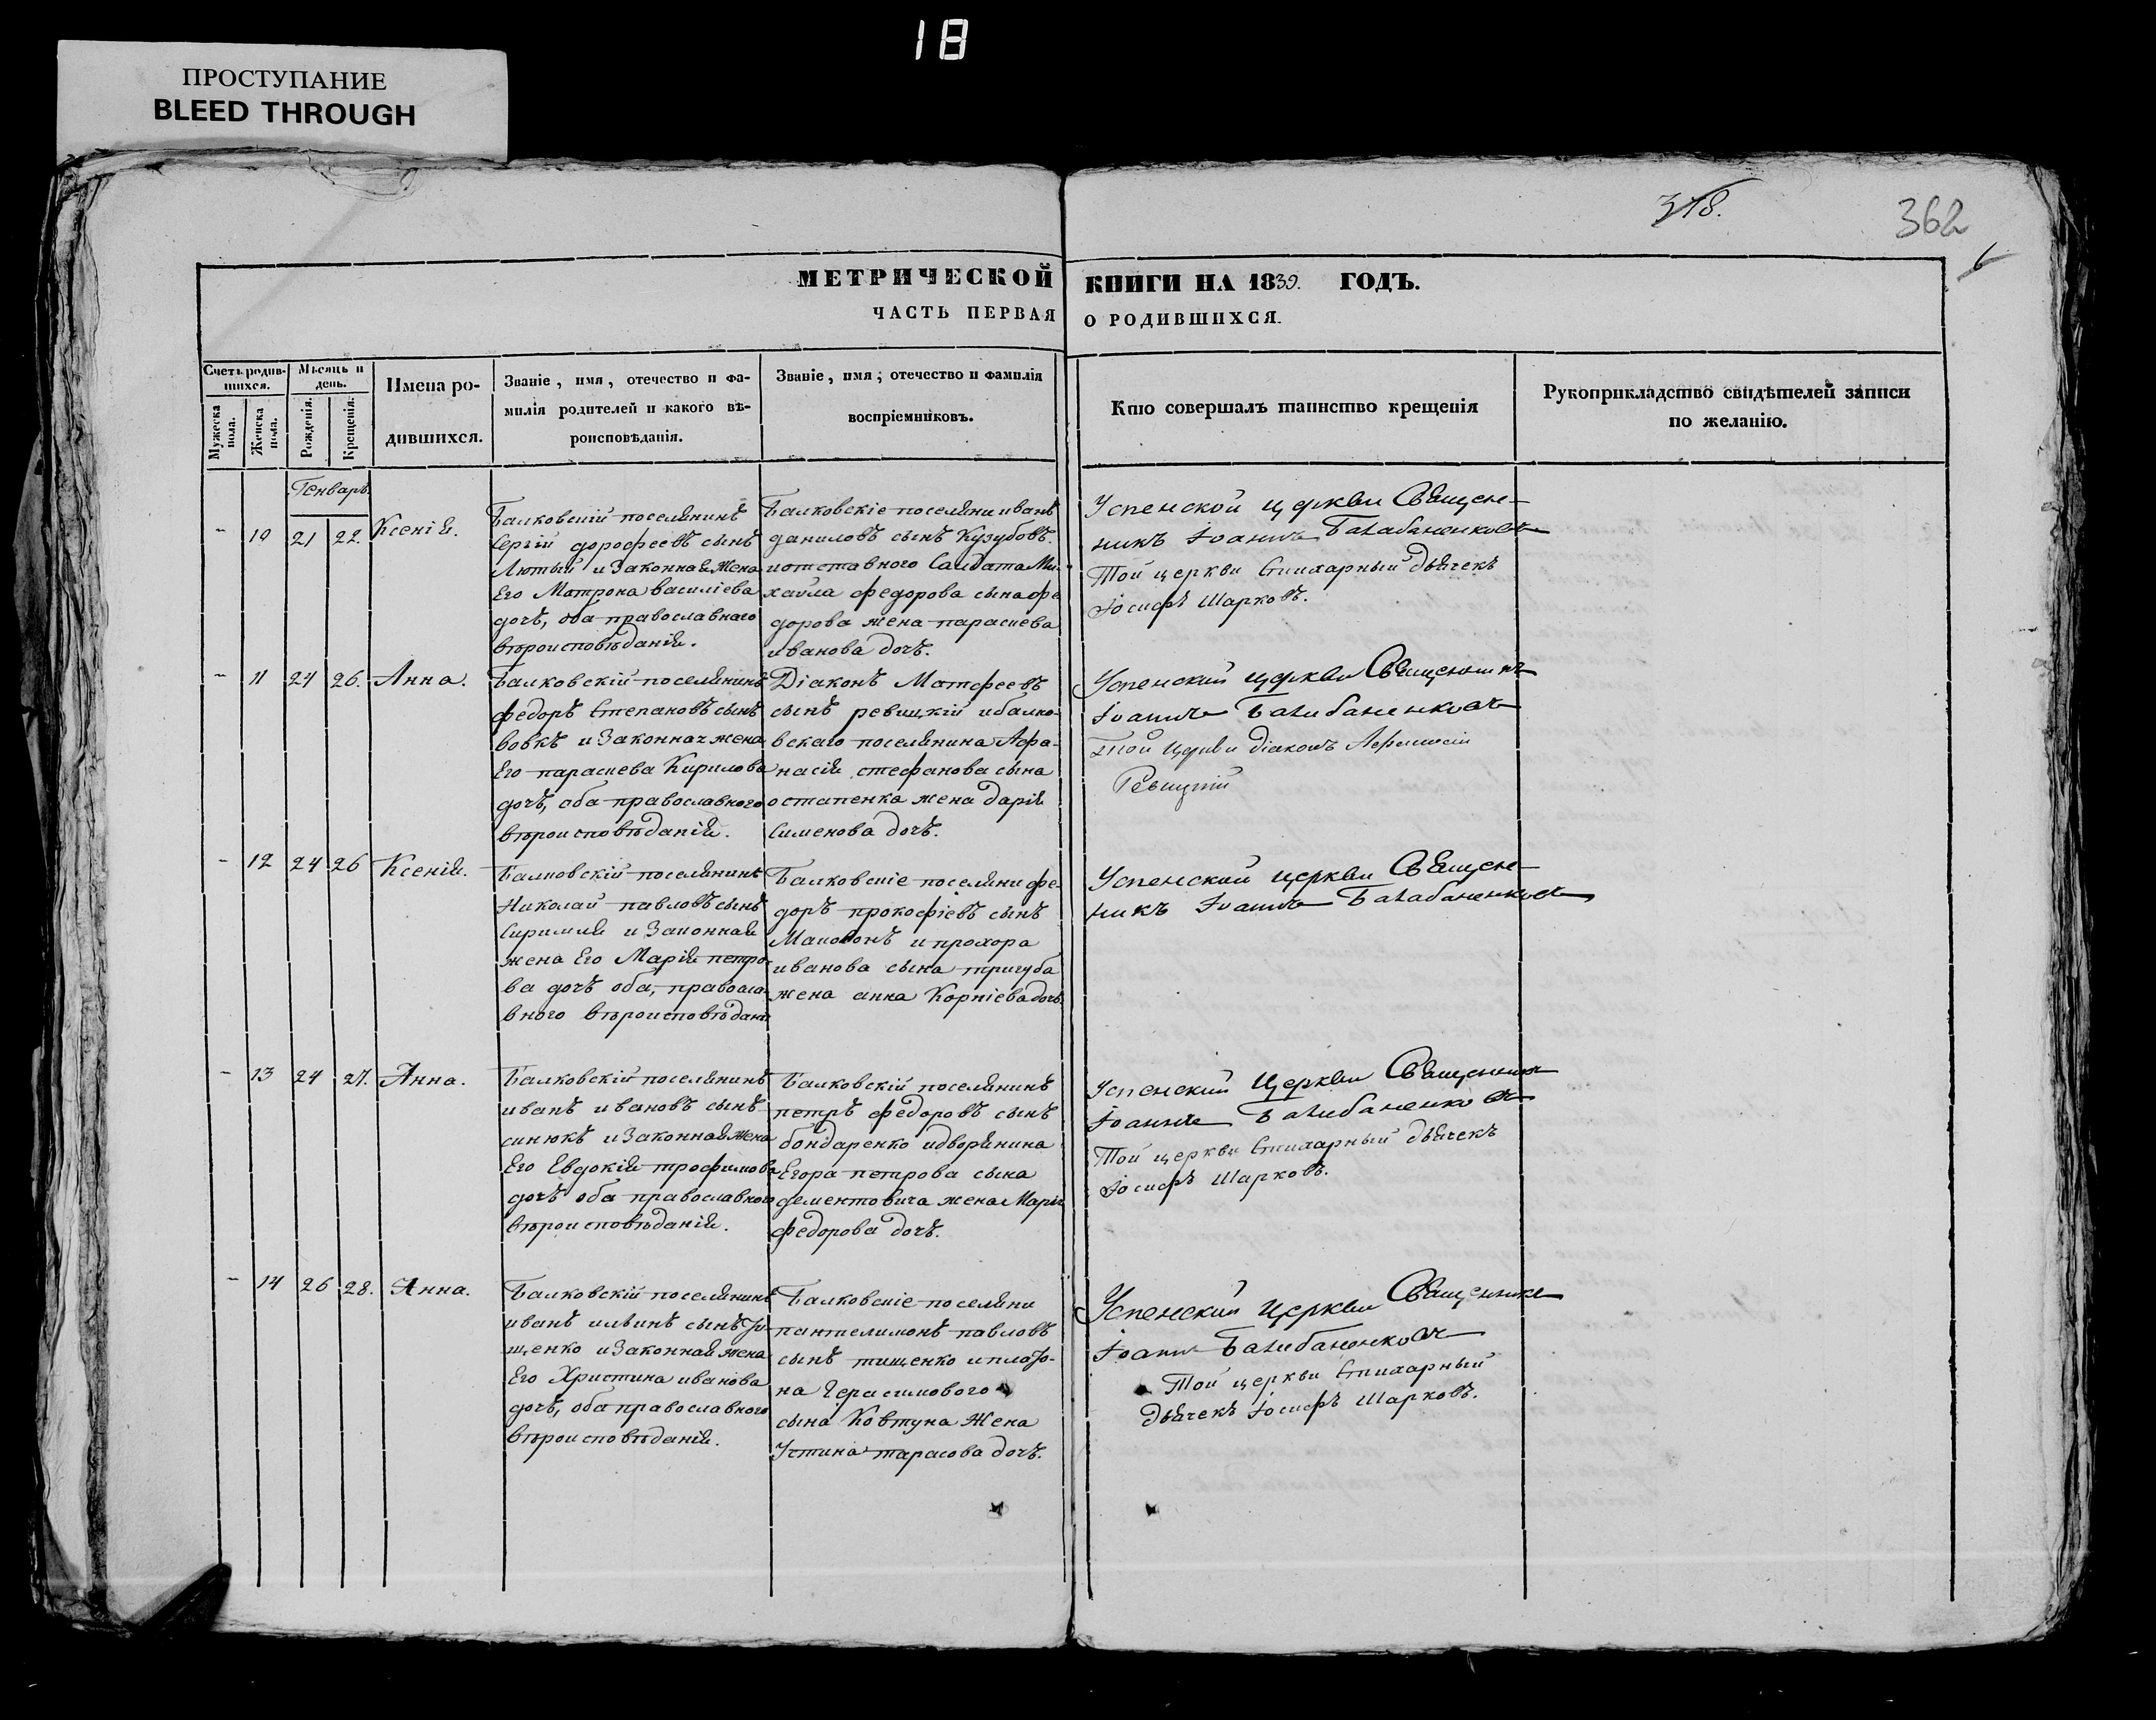 18
ПРОСТУПАНИЕ
BLEED THROUGH
318.
362
6
МЕТРИЧЕСКОЙ КНИГИ НА 1839. ГОДЪ.
ЧАСТЬ ПЕРВАЯ О РОДИВШИХСЯ.
Счетъ родившихся.
Мужеска пола.
Женска пола.
Мѣсяцъ и день.
Рожденія.
Крещенія.
Имена родившихся.
Званіе, имя, отечество и фамилія родителей и какого вѣроисповѣданія.
Званіе, имя, отечество и фамилія воспріемниковъ.
Кто совершалъ таинство крещенія
Рукоприкладство свидѣтелей записи по желанію.
Генварь.
- 10 21 22. Ксенія.
Балковскій поселянинъ
Сергій дорофеевъ сынъ
Лютый и Законная Жена
Его Матрона василіева
дочъ, оба православнаго
вѣроисповѣданія.
Балковскіе поселяни иванъ
даниловъ сынъ Кузубовъ.
иотставного Салдата Ми-
хаила федорова сына фе
дорова жена параскева
иванова дочъ.
Успенской церкви Священ-
никъ Іоаннъ Балабаненковъ
Той церкви Стихарный дьячекъ
Іосифъ Шарковъ.
- 11 24 26. Анна.
Балковскій поселянинъ
федоръ Степановъ сынъ
вовкъ и Законная жена
Его параскева Кирилова
дочъ, оба православного
вѣроисповѣданія.
Діаконъ Матфеевъ
сынъ ревицкій ибалко-
вскаго поселянина Афа-
насія стефанова сына
остапенка жена дарія
Сименова дочъ.
Успенский церкви Священникъ
Іоаннъ Балабаненковъ
той Церкви діаконъ Афанасій
Ревицкій
- 12 24 26 Ксенія.
Балковскій поселянинъ
Николай павловъ сынъ
и Законная
жена Его Марія петро-
ва дочъ оба, правосла-
вного вѣроисповѣдані
Балковскіе поселяни фе-
доръ прокофіевъ сынъ
и прохора
иванова сына тригуба
жена анна Корніева дочъ
Успенский церкви Священ-
никъ Іоаннъ Балабаненковъ
- 13 24 27. Анна.
Балковскій поселянинъ
иванъ ивановъ сынъ
синюкъ и Законная жена
Его Евдокія трофимова
дочъ оба православного
вѣроисповѣданія.
Балковскій поселянинъ
петръ федоровъ сынъ
бондаренко идворянина
Егора петрова сына
дементовича жена Марія
федорова дочъ.
Успенский Церкви Священникъ
Іоаннъ Балабаненковъ
Той церкви Стихарный дьячекъ
Іосифъ Шарковъ.
- 14 26 28. Анна.
Балковскій поселянинъ
иванъ ильинъ сынъ
щенко и Законная жена
Его Христина иванова
дочъ, оба православного
вѣроисповѣданія.
Балковскіе поселяни
пантелимонъ павловъ
сынъ тищенко
на Герасимового
сына Ковтуна Жена
Устина тарасова дочъ.
Успенский Церкви Священникъ
Іоаннъ Балабаненковъ
Той церкви Стихарный
дьячекъ Іосифъ Шарковъ.